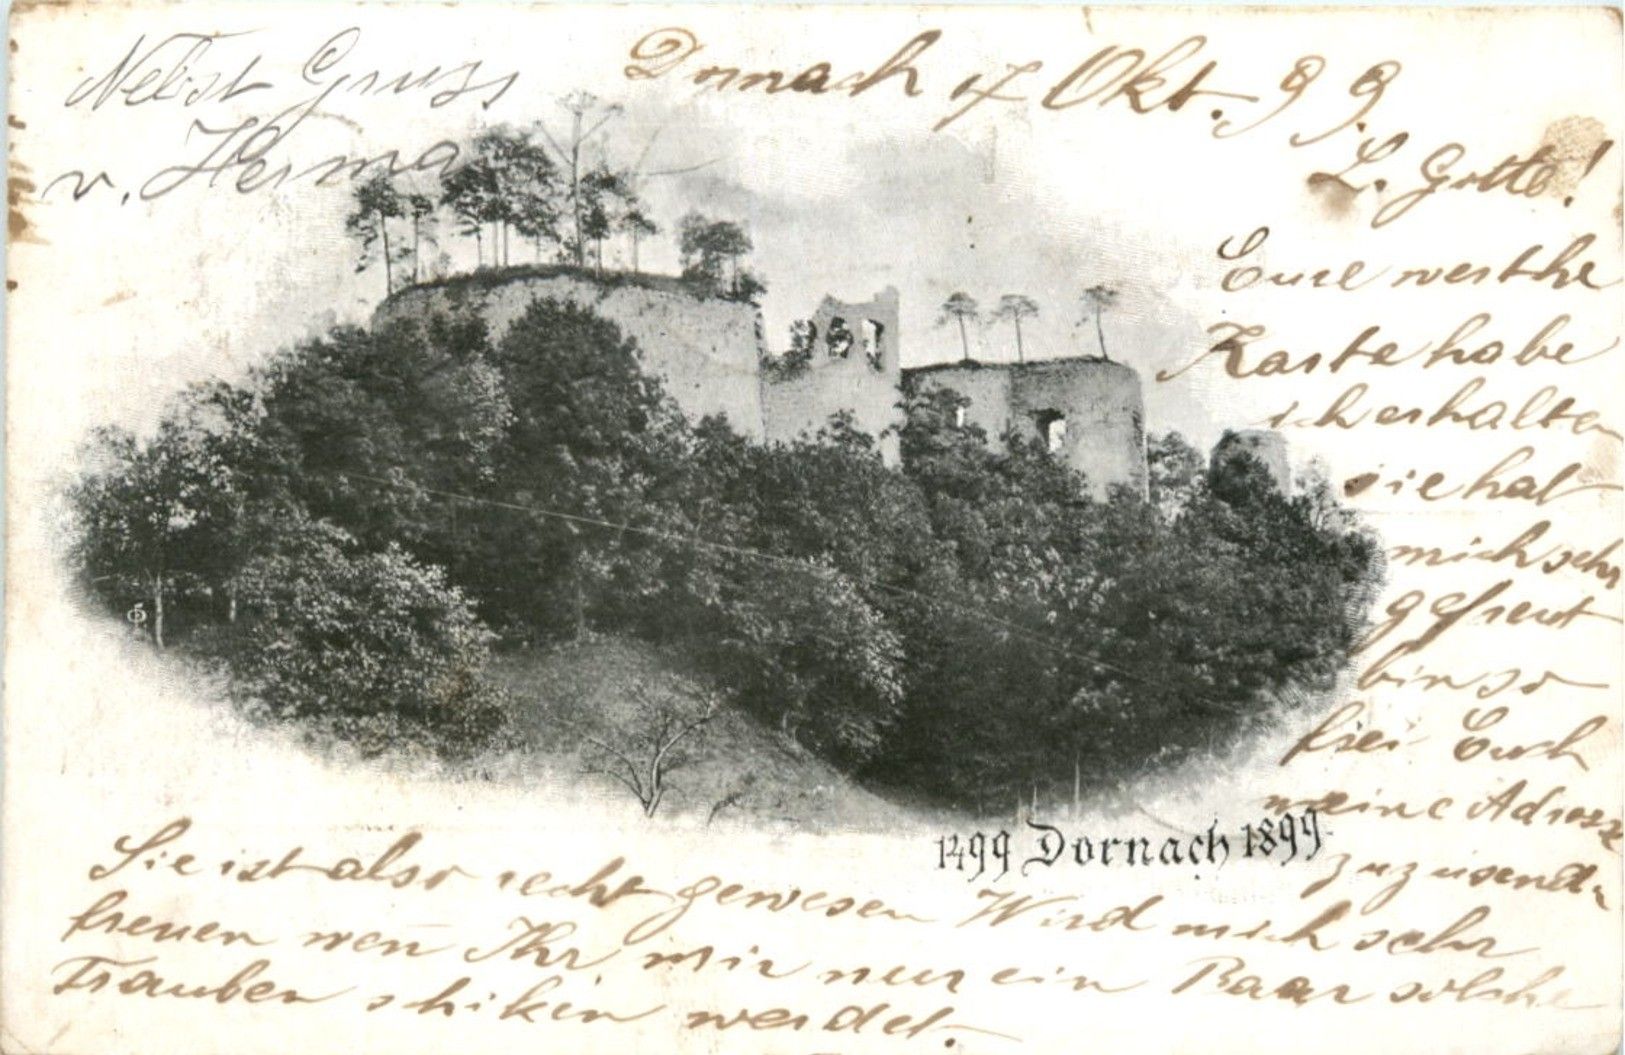 Nebst Gruss
v. Herma
Dornach 17 Okt. 99.
L. Gotte!
Eure werthe
Karte habe
ich erhalten
sie hat
mich sehr
gefreut
bin so
frei Euch
meine Adresse
zuzusenden
1499 Dornach 1899
Sie ist also recht gewesen Wird mich sehr
freuen wen Ihr mir nur ein Baar solche
Trauben schiken werdet.